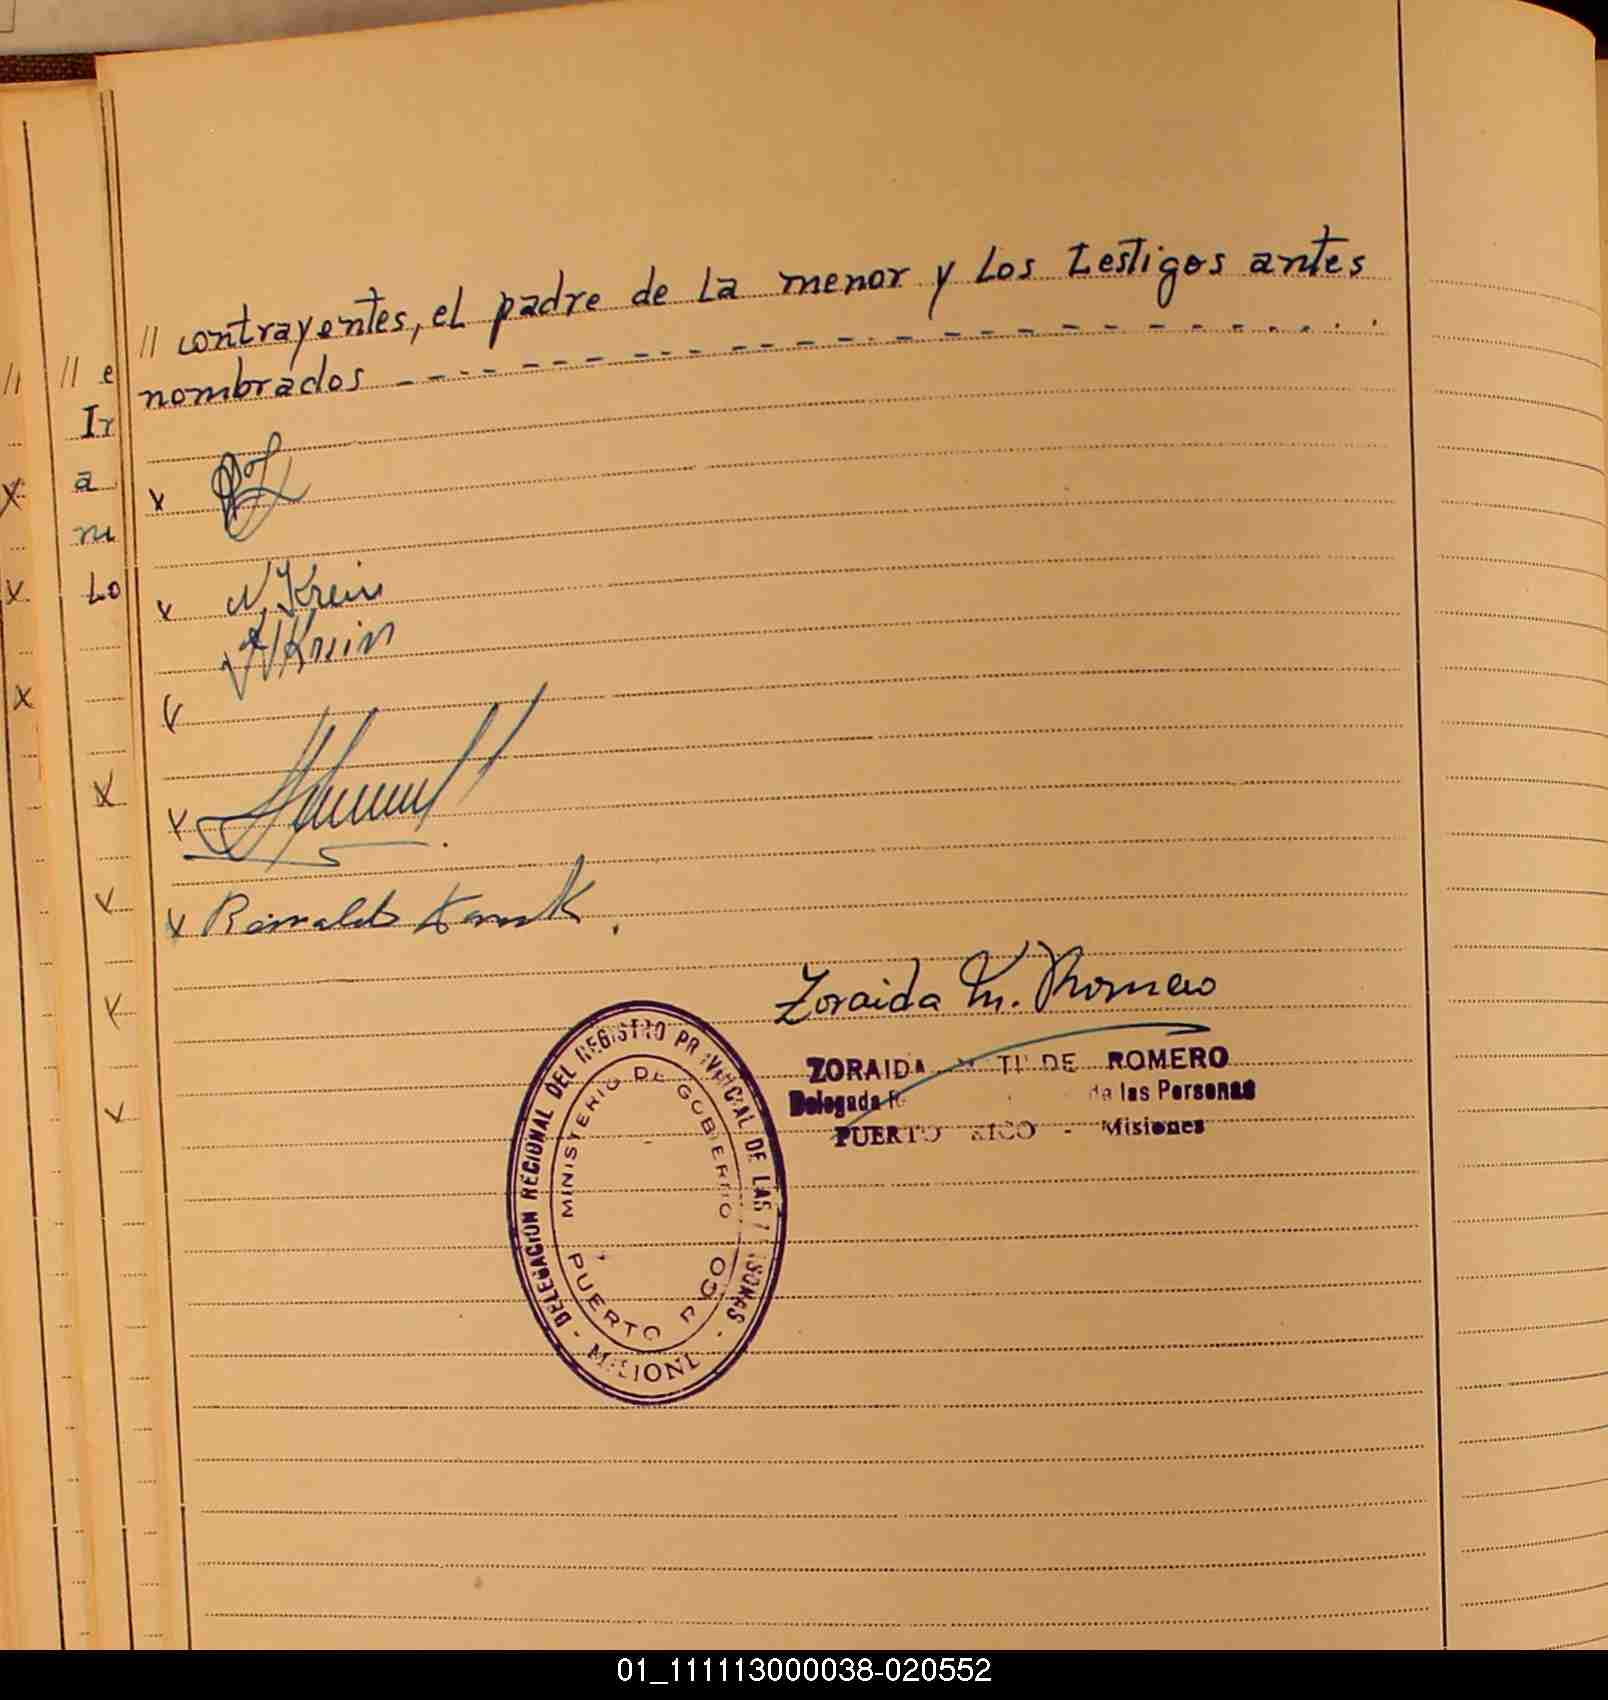 // contrayentes, el padre de La menor y Los testigos antes
nombrados
// // e
Ir
a
m
Lo
x
x N. Krein
Krein
x
x
x Reinaldo
Zoraida M. Romero
ZORAIDA DE ROMERO
Delegada de las Personas
PUERTO RICO - Misiones
DELEGACION REGIONAL DEL REGISTRO PROVINCIAL DE LAS PERSONAS -
MINISTERIO DE GOBIERNO
PUERTO RICO
- MISIONES
01_111113000038-020552